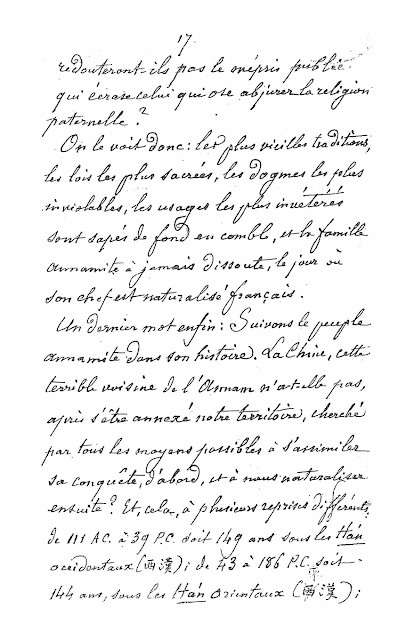 17.
redouteront-ils pas le mépris public
qui écrase celui qui ose abjurer la religion
paternelle ?
On le voit donc : les plus vieilles traditions,
les lois les plus sacrées, les dogmes les plus
inviolables, les usages les plus invétérés
sont sapés de fond en comble, et la famille
annamite à jamais dissoute, le jour où
son chef est naturalisé français.
Un dernier mot enfin : Suivons le peuple
annamite dans son histoire. La Chine, cette
terrible voisine de l'Annam n'a-t-elle pas,
après s'être annexé notre territoire, cherché
par tous les moyens possibles à s'assimiler
sa conquête, d'abord, et à nous naturaliser
ensuite ? Et, cela, à plusieurs reprises différents,
de 111 AC. à 39 P.C. soit 149 ans sous les Hán
occidentaux (西漢) ; de 43 à 186 P.C. soit
144 ans, sous les Hán Orientaux (西漢) ;